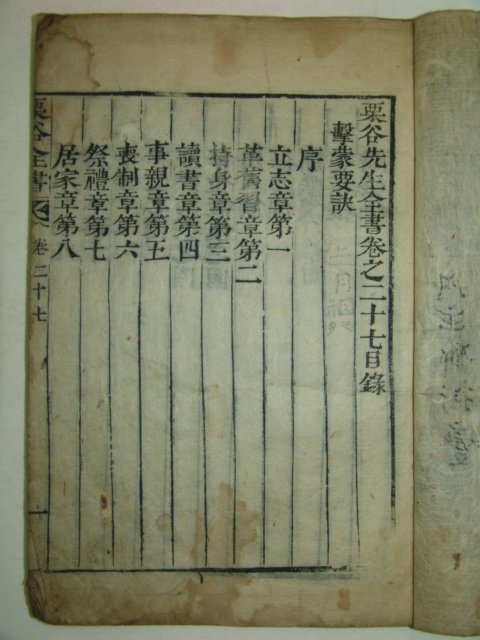 栗谷先生全書卷之二十七目錄
擊蒙要訣
序
立志章第一
革舊習章第二
持身章第三
讀書章第四
事親章第五
喪制章第六
祭禮章第七
居家章第八
栗谷全書 卷二十七 一